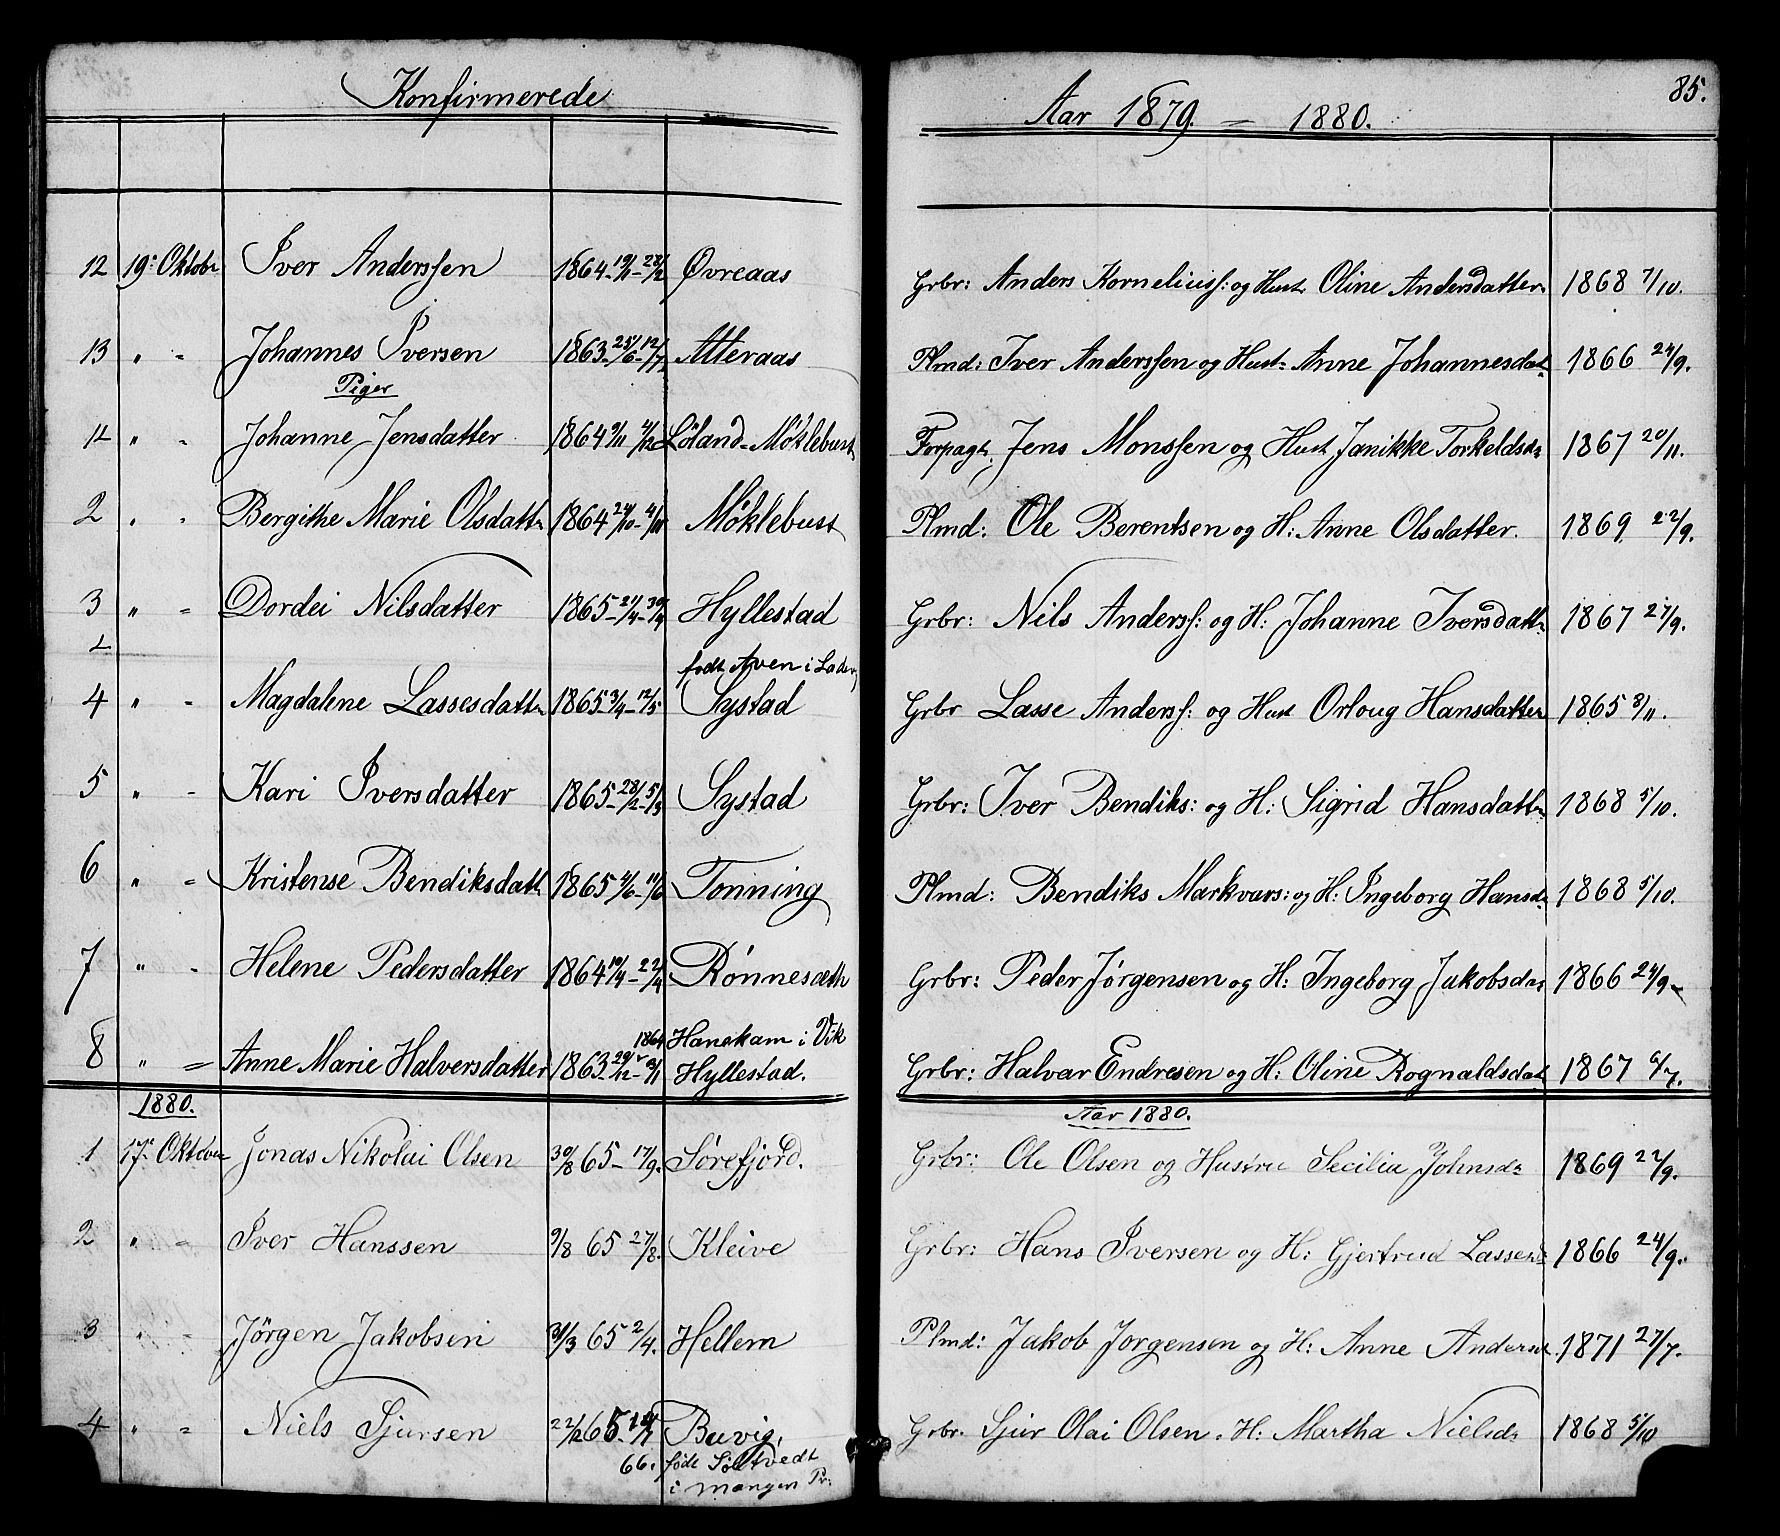 Konfirmerede
Aar 1879. = 1880.
85.
12 19: Oktobr Iver Anderssen 1864 19/11 - 28/12 Øvreaas Grbr: Anders Korneliuss: og Hust Oline Andersdatter 1868 7/10.
13 " - Johannes Iversen 1863 25/6 - 12/7 Atteraas Plmd: Iver Anderssen og Hust: Anne Johannesdat 1866 24/9.
Piger
1 " - Johanne Jensdatter 1864 9/11 4/12 Löland - Møklebust Forpagt. Jens Monssen og Hust Janikke Torkeldsd: 1867 20/11.
2 " - Bergithe Marie Olsdatt 1864 24/10 - 4/11 Møklebust Plmd: Ole Berentsen og H: Anne Olsdatter. 1869 22/9.
3 " - Dordei Nilsdatter 1865 - 21/4 - 30/4 Hyllestad Grbr: Nils Anderss: og H: Johanne Iversdatt 1867 27/9.
født Aven i Lader
4 " - Magdalene Lassesdatt 1865 3/4 - 12/5 Systad Grbr Lasse Anderss: og Hust Orloug Hansdatter 1865 8/11.
5 " - Kari Iversdatter 1865 - 28/2 - 5/3 Systad Grbr: Iver Bendiks: og H: Sigrid Hansdatt 1868 5/10.
6 " - Kristense Bendiksdatt 1865 4/6 - 11/6 Tonning Plmd: Bendiks Markvars: og H: Ingeborg Hansd: 1868 5/10.
7 " - Helene Pedersdatter 1864 10/4 - 22/4 Rønnesæth Grbr: Peder Jørgensen og H: Ingeborg Jakobsda: 1866 24/9
1864 Hanekam i Vik
8 " = Anne Marie Halversdatter 1863 29/12 - 9/1 Hyllestad. Grbr: Halvar Endresen og H: Oline Rognaldsdat 1867 6/7.
1880. Aar 1880.
1 17: Oktober Jonas Nikolai Olsen 30/8 65 - 17/9. Sørefjord. Grbr: Ole Olsen og Hustru Secilia Johnsd: 1869 22/9.
2 " - Iver Hanssen 9/8 65 27/8. Kleive Grbr: Hans Iversen og H: Gjertrud Lassesd: 1866 24/9.
3 " - Jørgen Jakobsen 31/3 65 2/4. Hellem Plmd: Jakob Jørgensen og H: Anne Andersd. 1871 27/7.
4 " = Niels Sjursen 22/12 65 14/1 Buvig, Grbr. Sjur Olai Olsen. H: Martha Nielsd: 1868 5/10
66. føde Søltvedt
i mangen Pr: